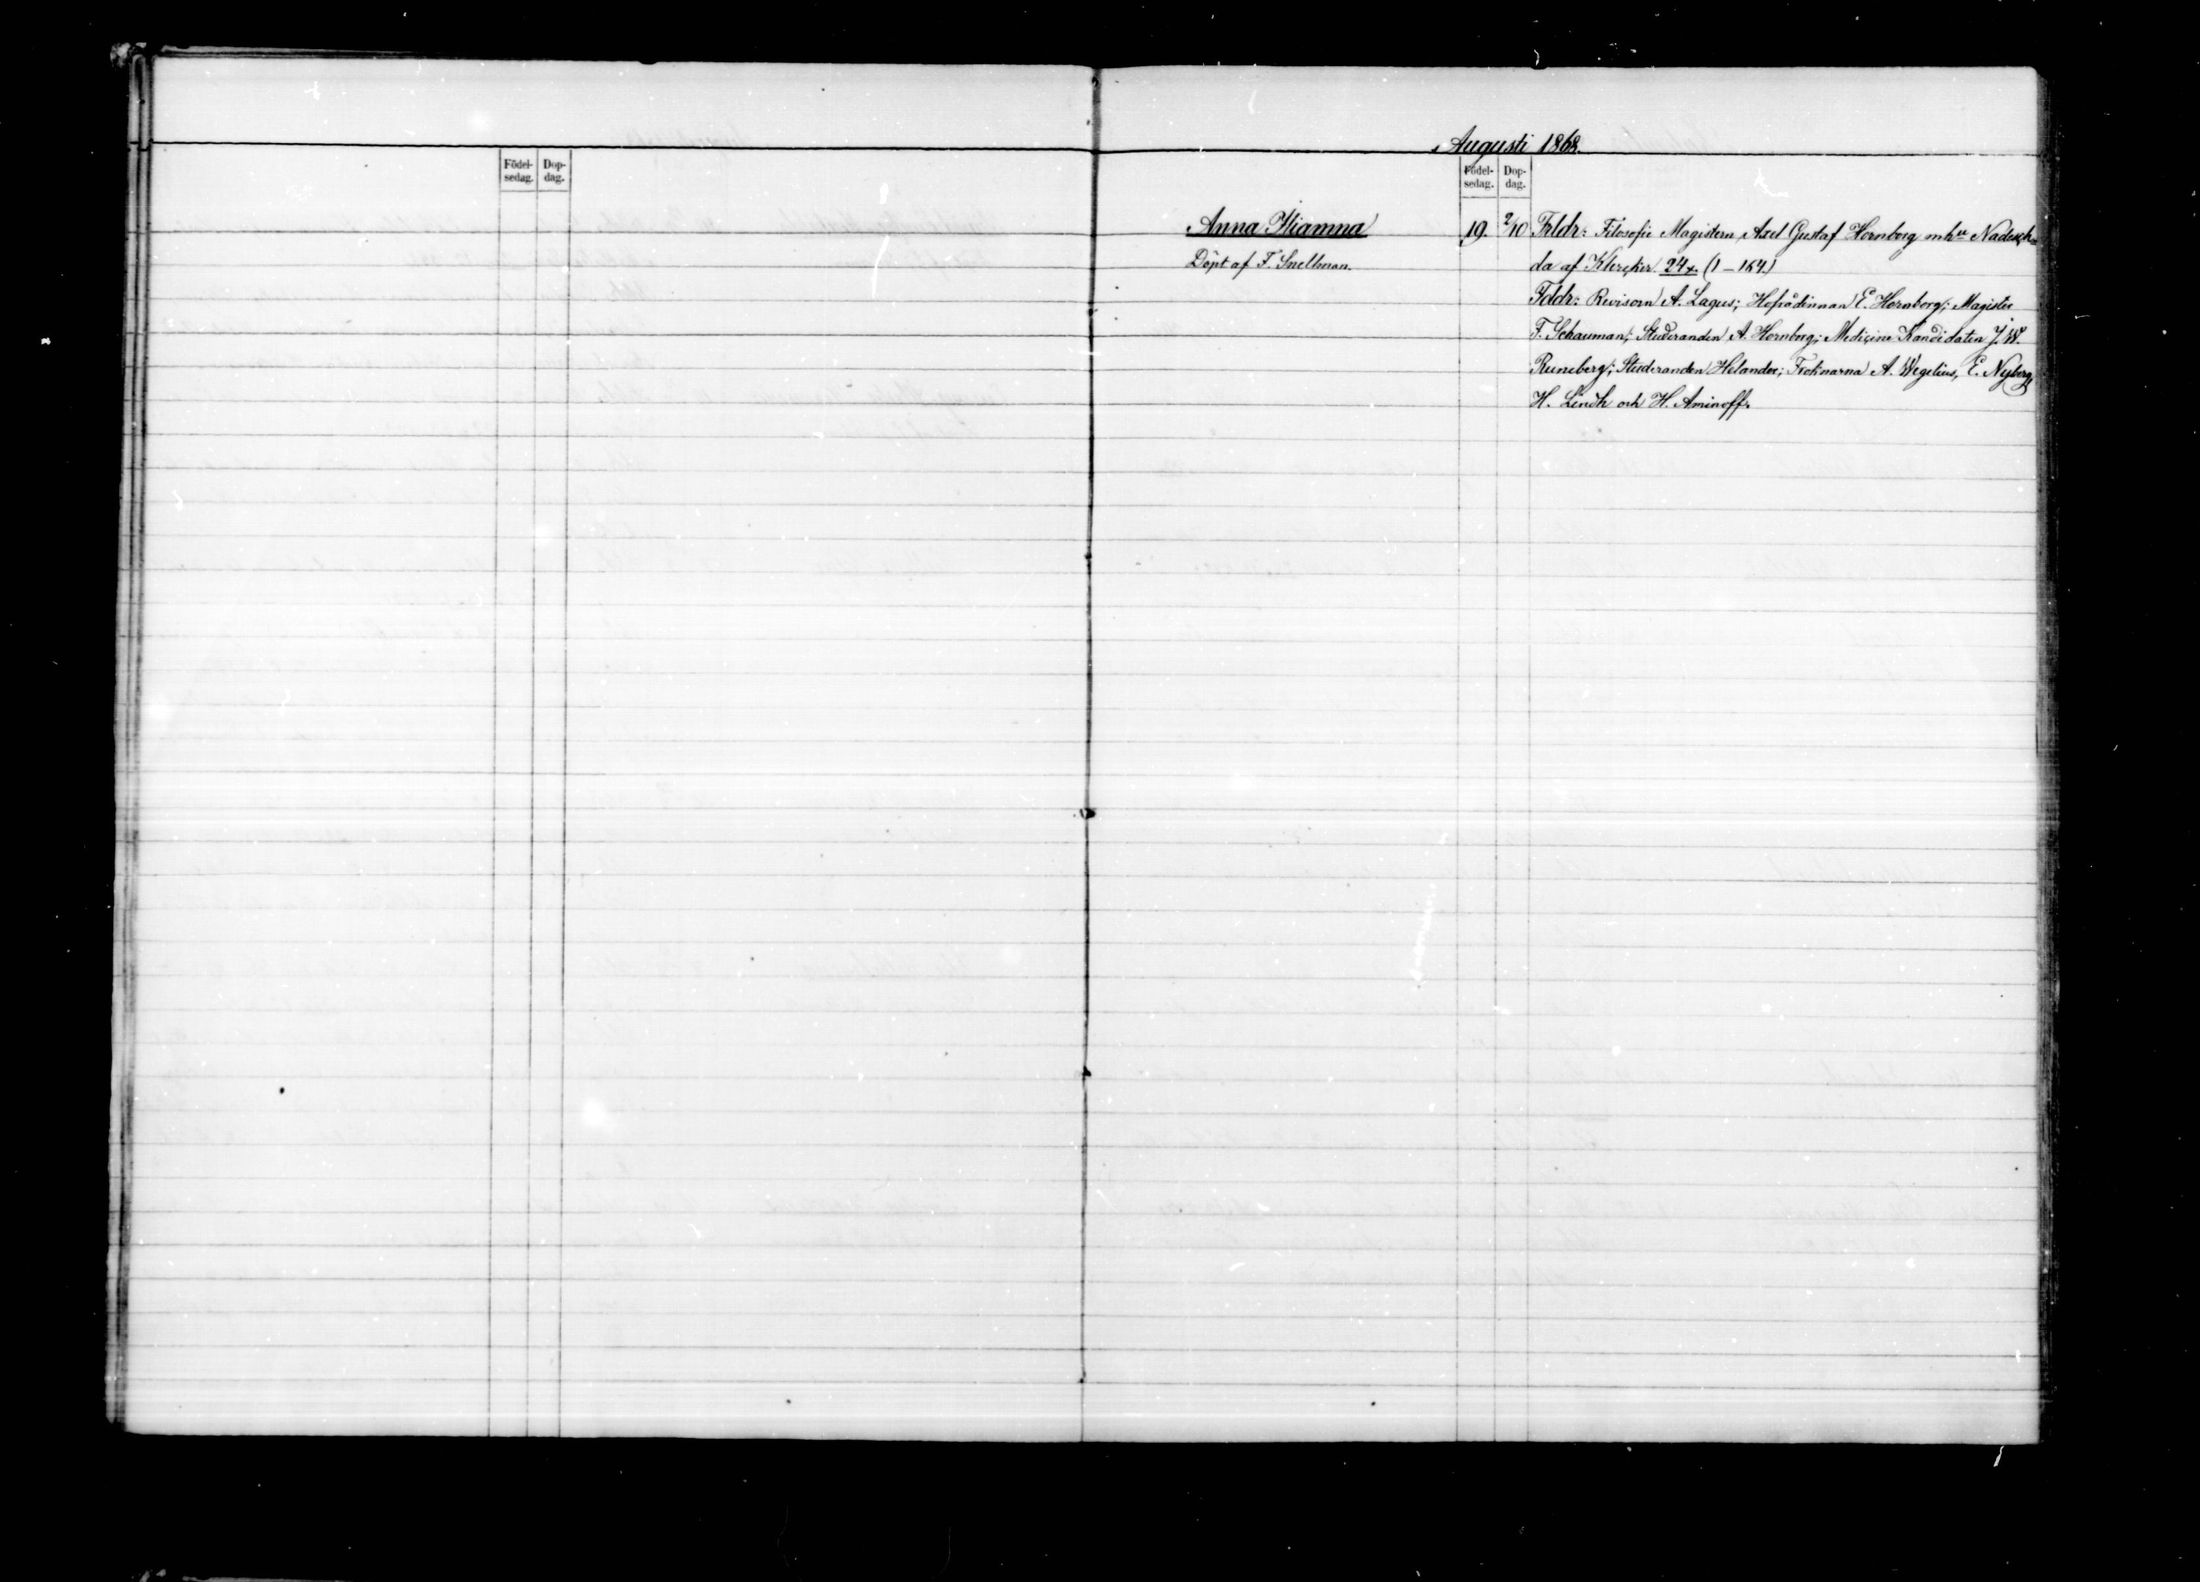 Födel-
sedag.
Dop-
dag.
Augusti 1868.
Födel-
sedag.
Dop-
dag.
Anna
19. 2/10 Frldr: Filosofie Magistern Axel Gustaf Hornborg m hu Nadesch-
Döpt af F. Snellman.
da af Klercker 24 (1–164.)
Fddr: Revisorn A. Lagus; Hofrådinnan E. Hornborg; Magister
F. Schauman; Studeranden A. Hornborg; Medicine Kandidaten J. W.
Runeberg; Studeranden Helander; Fröknarna A. Wegelius, E. Nyberg,
H. Lindh och H. Aminoff.